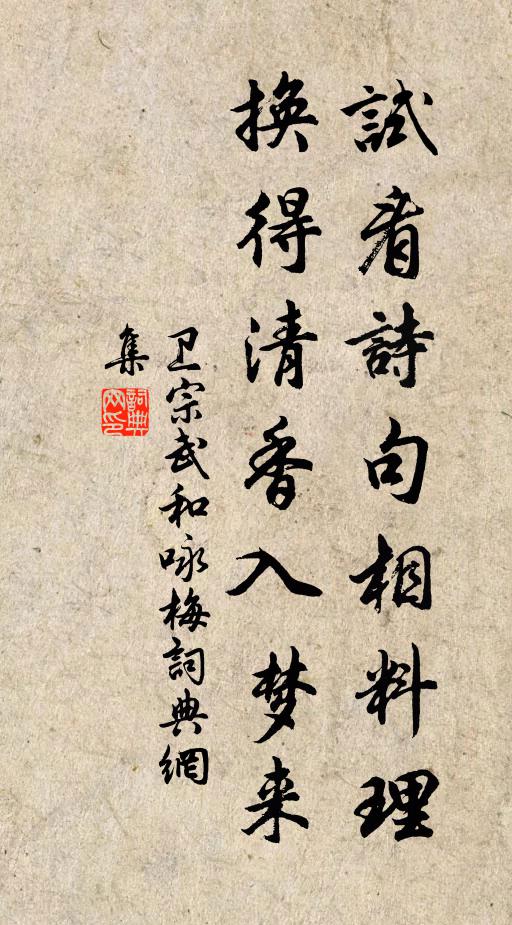 試看詩句相料理
換得清香入梦来
卫宗武和咏梅詞典網
集
詞典網印